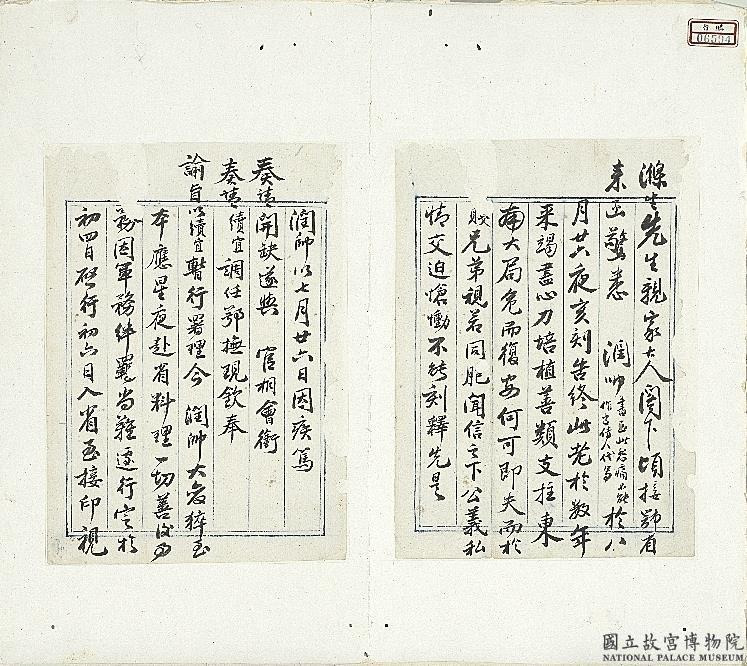 滌生先生親家大人閣下頃接鄂省
來函驚悉 潤帥
書至此忽痛不能
作字倩人代寫
於八
月廿六夜亥刻告終此老於數年
來竭盡心力培植善類支拄東
南大局危而復安何可即夫而於
兄弟視若同胞聞信之下公義私
情交迫愴慟不能刻釋先是
潤帥以七月廿六日因疾篤
奏請開缺遂與 官相會銜
奏請續宜調任鄂撫現欽奉
諭旨以續宜暫行署理今 潤帥大故猝至
本應星夜赴省料理一切善後事
務因軍務絆羈尚難遽行定於
初四日啟行初六日入省至接印視
國立故宮博物院
NATIONAL PALACE MUSEUM